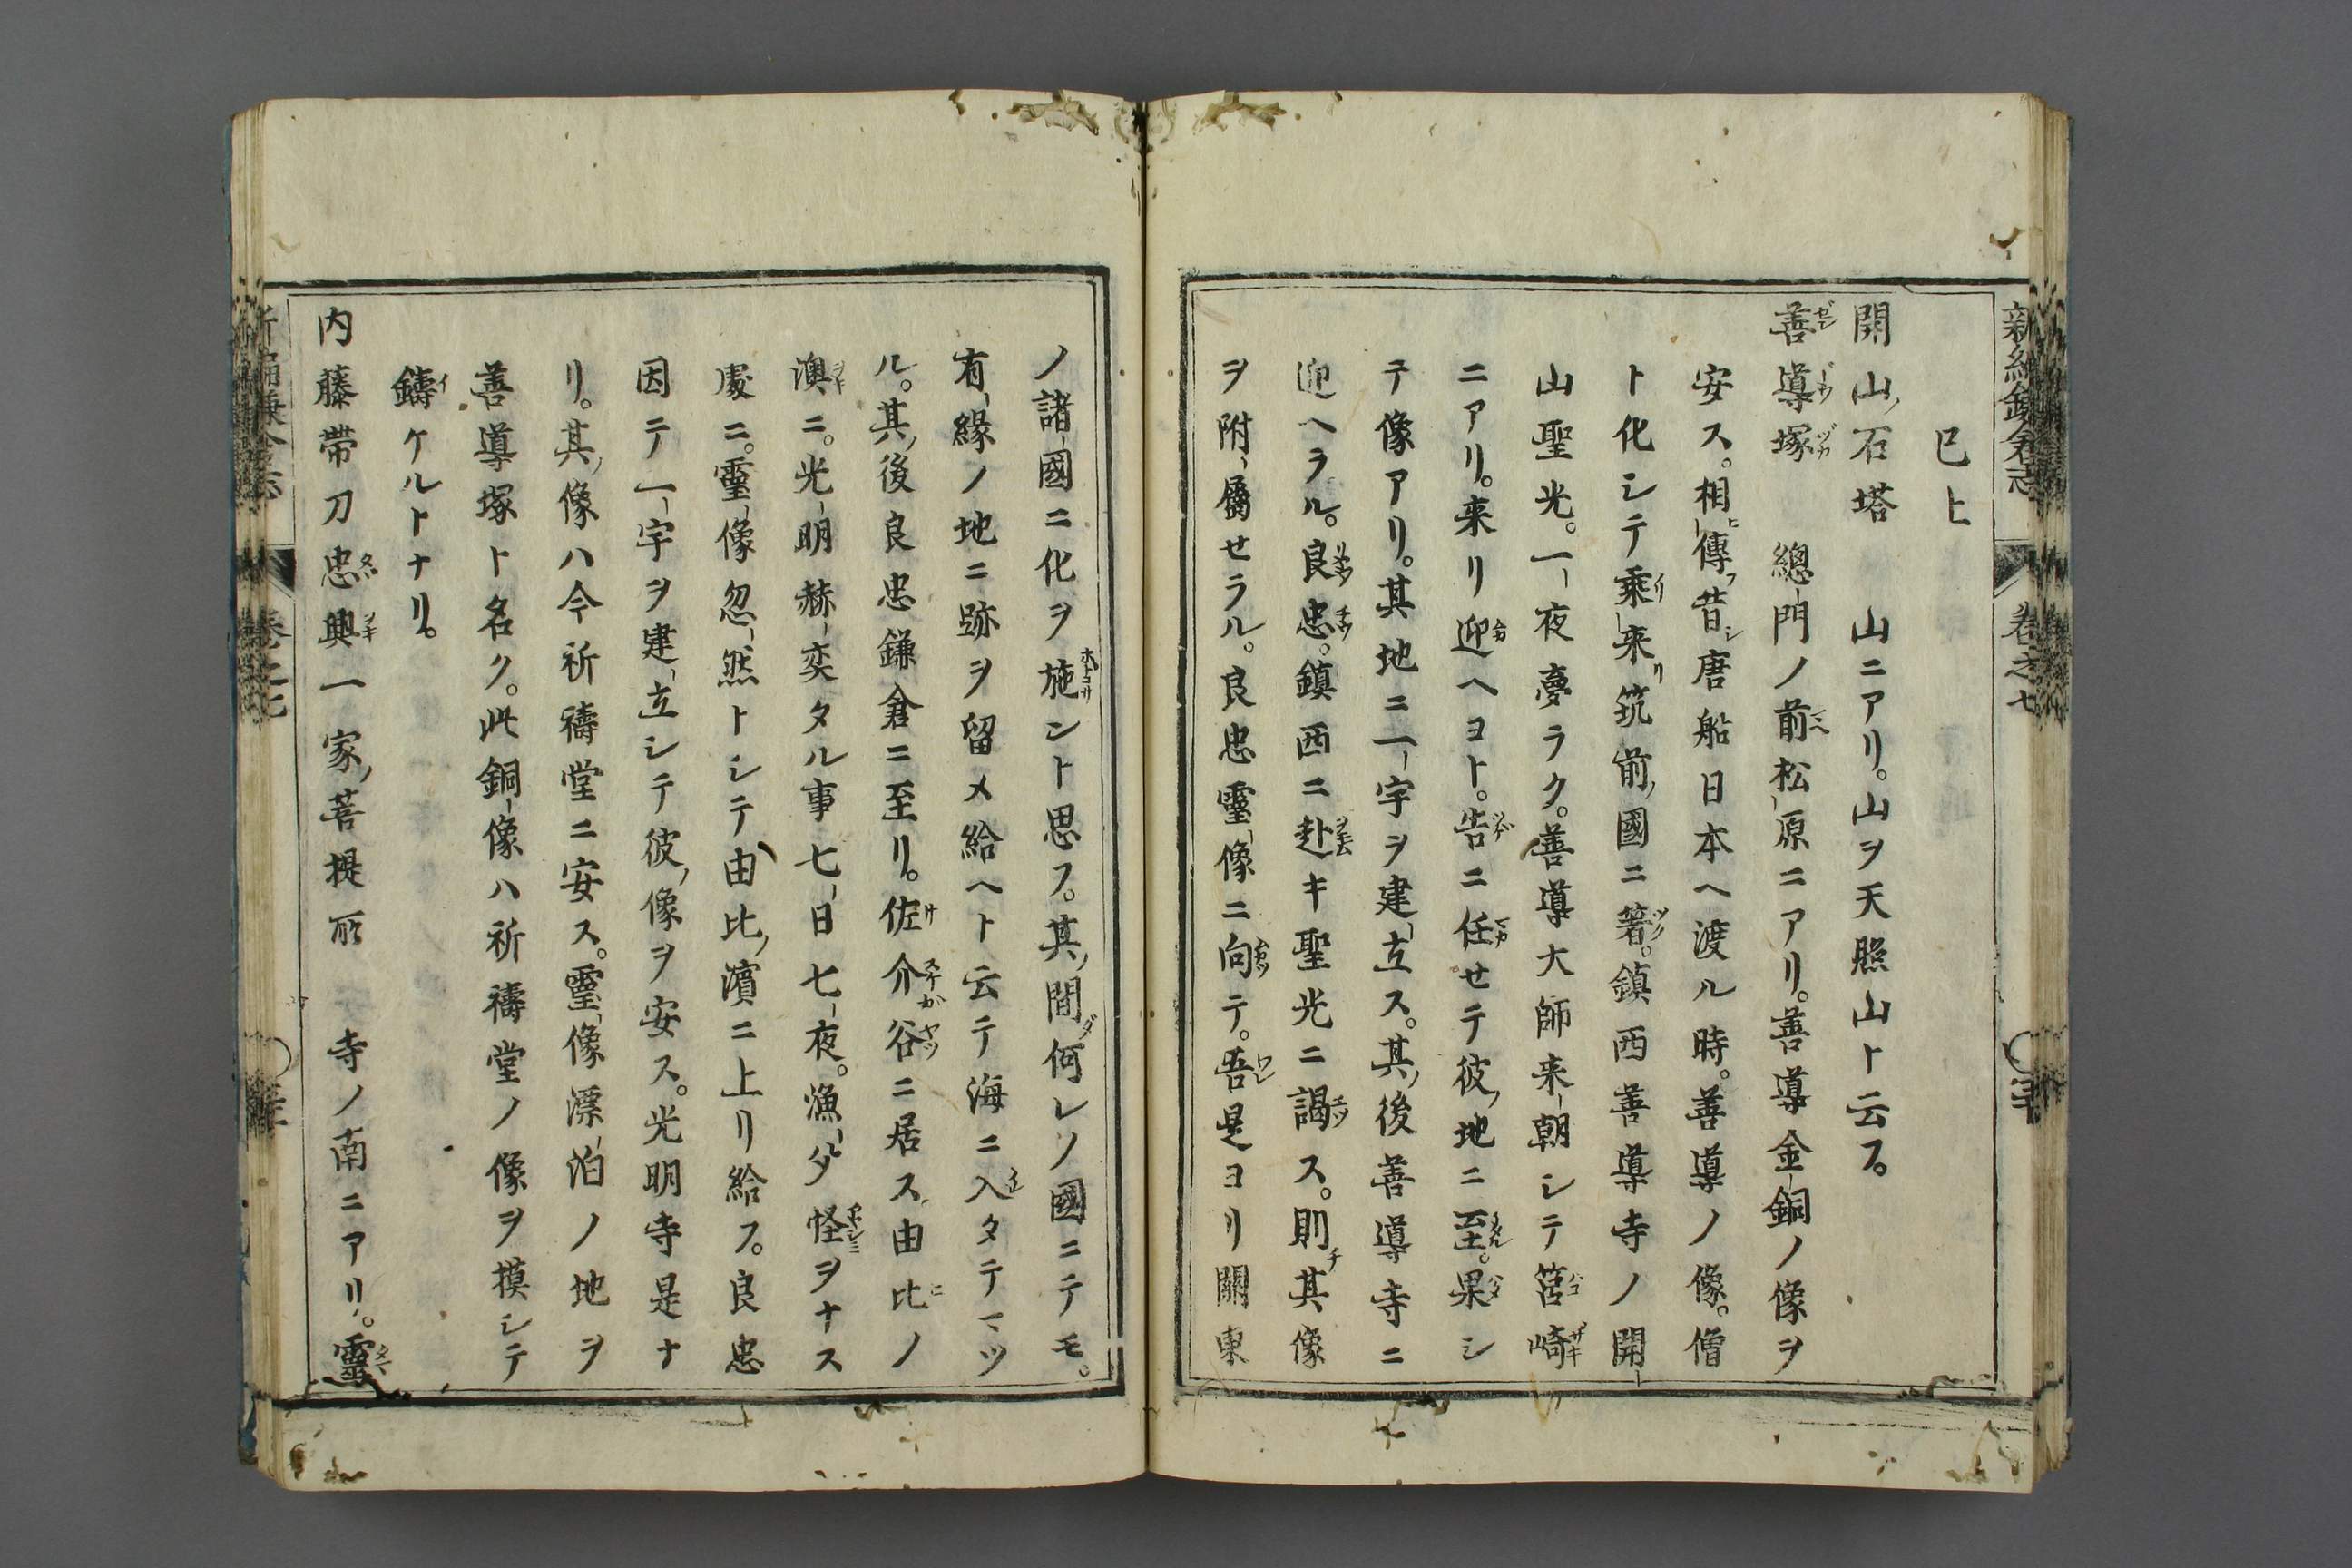 新編鎌倉志 卷之七
已上
開山ノ石塔 山ニアリ。山ヲ天照山ト云フ。
善導塚 總門ノ前松原ニアリ。善導金銅ノ像ヲ
安ス。相傳フ昔シ唐船日本ヘ渡ル時。善導ノ像。僧
ト化シテ乘リ來リ筑前ノ國ニ著ク。鎮西善導寺ノ開
山聖光。一夜夢ラク。善導大師来朝シテ筥崎
ニアリ。来リ迎ヘヨト。告ニ任せテ彼ノ地ニ至ル。果シ
テ像アリ。其地ニ一宇ヲ建立ス。其ノ後善導寺ニ
迎ヘラル。良忠。鎮西ニ赴キ聖光ニ謁ス。則チ其像
ヲ附屬せラル。良忠靈像ニ向テ。吾是ヨリ關東
ノ諸國ニ化ヲ施ント思フ。其ノ間ダ何レノ國ニテモ。
有緣ノ地ニ跡ヲ留メ給ヘト云テ海ニ入タテマツ
ル。其ノ後良忠鎌倉ニ至リ。佐介谷ニ居ス由比ノ
澳ニ。光明赫奕タル事七日七夜。漁父怪ヲナス
處ニ。靈像忽然トシテ由比ノ濱ニ上リ給フ。良忠
因テ一宇ヲ建立シテ彼ノ像ヲ安ス。光明寺是ナ
リ。其ノ像ハ今祈禱堂ニ安ス。靈像漂泊ノ地ヲ
善導塚ト名ク。此銅像ハ祈禱堂ノ像ヲ摸シテ
鑄ケルトナリ。
内藤帶刀忠興一家ノ菩提所 寺ノ南ニアリ。靈